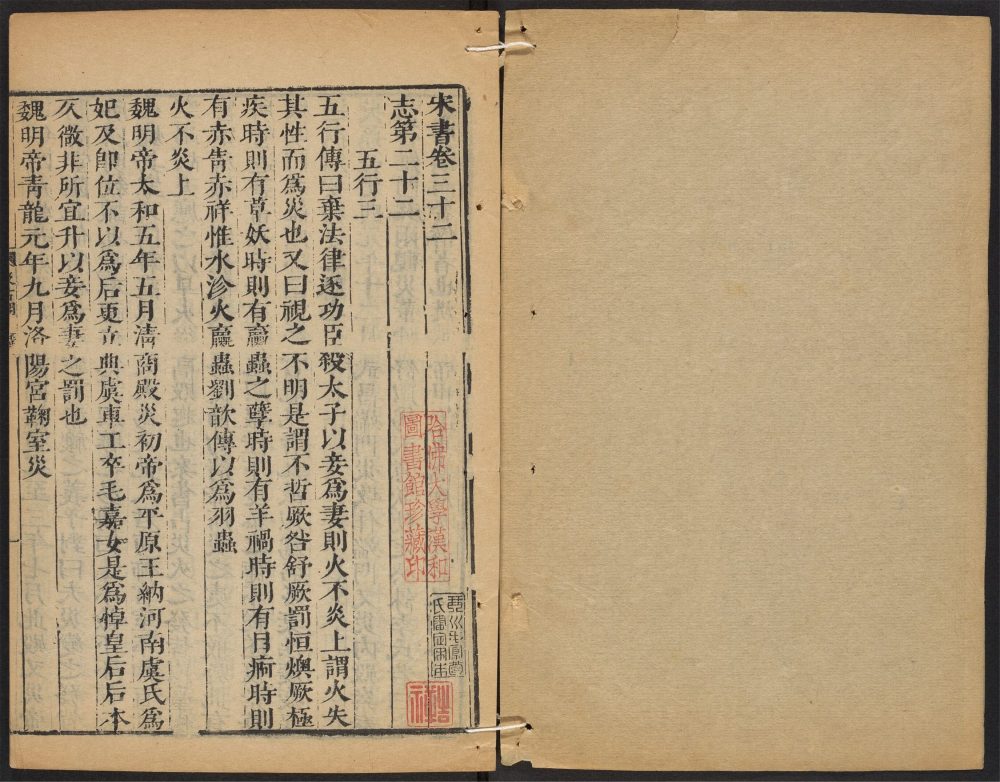 宋書卷三十二
志第二十二
五行三
五行傳曰棄法律逐功臣殺太子以妾爲妻則火不炎上謂火失
其性而爲災也又曰視之不明是謂不哲厥咎舒厥罰恒燠厥極
疾時則有草妖時則有蠃蟲之孽時則有羊禍時則有目痾時則
有赤眚赤祥惟水沴火蠃蟲劉歆傳以爲羽蟲
火不炎上
魏明帝太和五年五月清商殿災初帝爲平原王納河南虞氏爲
妃及卽位不以爲后更立典虞車工卒毛嘉女是爲悼皇后后本
仄微非所宜升以妾爲妻之罰也
魏明帝青龍元年九月洛陽宮鞠室災
哈佛大學漢和
圖書館珍藏印